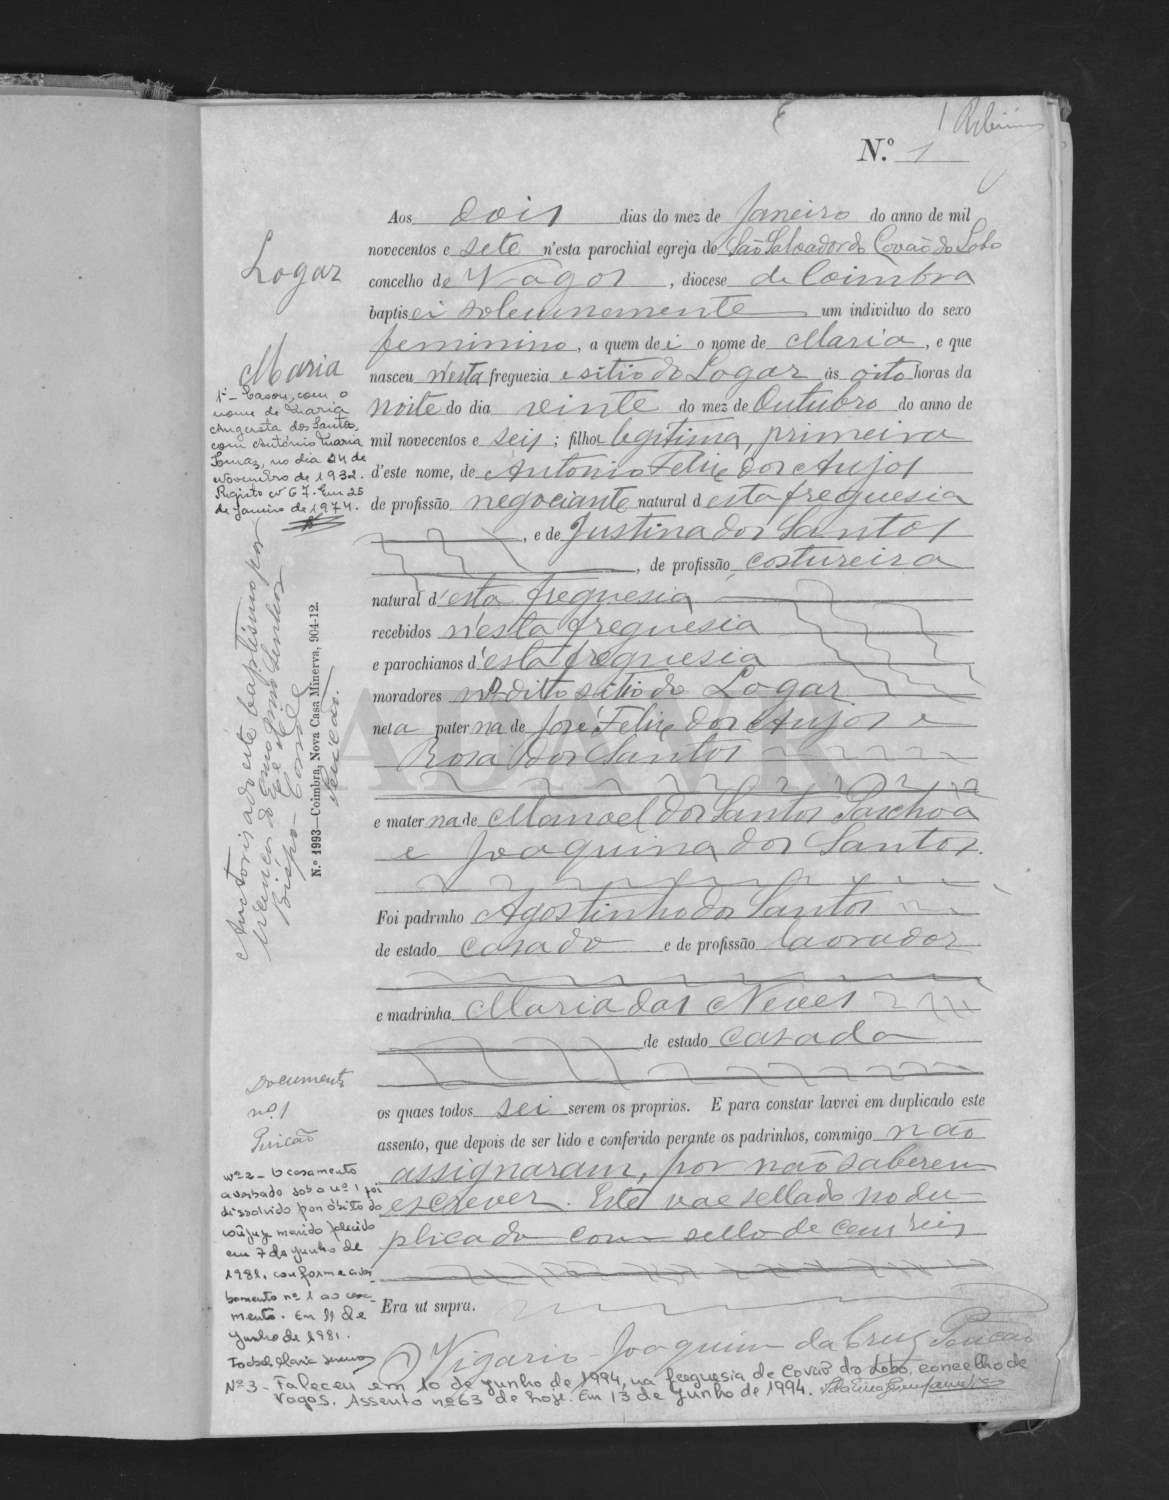 1
N.º 1
Aos dois dias do mez de Janeiro do anno de mil
novecentos e sete n'esta parochial egreja de São Salvador do Covão do Lobo
concelho de Vagos, diocese de Coimbra
baptisei solemnemente um individuo do sexo
feminino, a quem dei o nome de Maria, e que
nasceu n'esta freguezia e sitio do Logar ás oito horas da
noite do dia vinte do mez de Outubro do anno de
mil novecentos e seis; filha legitima, primeira
d'este nome, de Antonio Felix dos Anjos
de profissão negociante natural d'esta freguesia
, e de Justina dos Santos
, de profissão costureira
natural d'esta freguesia
recebidos n'esta freguesia
e parochianos d'esta freguesia
moradores no dito sitio do Logar
neta paterna de José Felix dos Anjos e
Rosa dos Santos
e materna de Manoel dos Santos Paschoa
e Joaquina dos Santos.
Foi padrinho Agostinho dos Santos
de estado casado e de profissão lavrador
e madrinha Maria das Neves
de estado casada
os quaes todos sei serem os proprios. E para constar lavrei em duplicado este
assento, que depois de ser lido e conferido perante os padrinhos, commigo não
assignaram, por não saberem
escrever. Este vae sellado no du-
plicado com sello de cem reis
Era ut supra.
O Vigario Joaquim da Cruz
Logar
Maria
1º - Casou, com o
nome de Maria
Augusta dos Santos,
com António Maria
Tomaz, no dia 24 de
Novembro de 1932.
Registo nº 67. Em 25
de Janeiro de 1974.
Auctorisado este baptismo por
do Exmo
Bispo-Conde
N.º 1993—Coimbra, Nova Casa Minerva, 904-12.
Documento
nº 1
Nº 2 - O casamento
averbado sob o nº 1 foi
dissolvido por óbito do
cônjuge marido falecido
em 7 de Junho de
1981, conforme aver-
bamento nº 1 ao casa-
mento. Em 11 de
Junho de 1981.
Nº 3 - Faleceu em 10 de Junho de 1994, na freguesia de Covão do Lobo, concelho de
Vagos. Assento nº 63 de hoje. Em 13 de Junho de 1994.
ADAVR